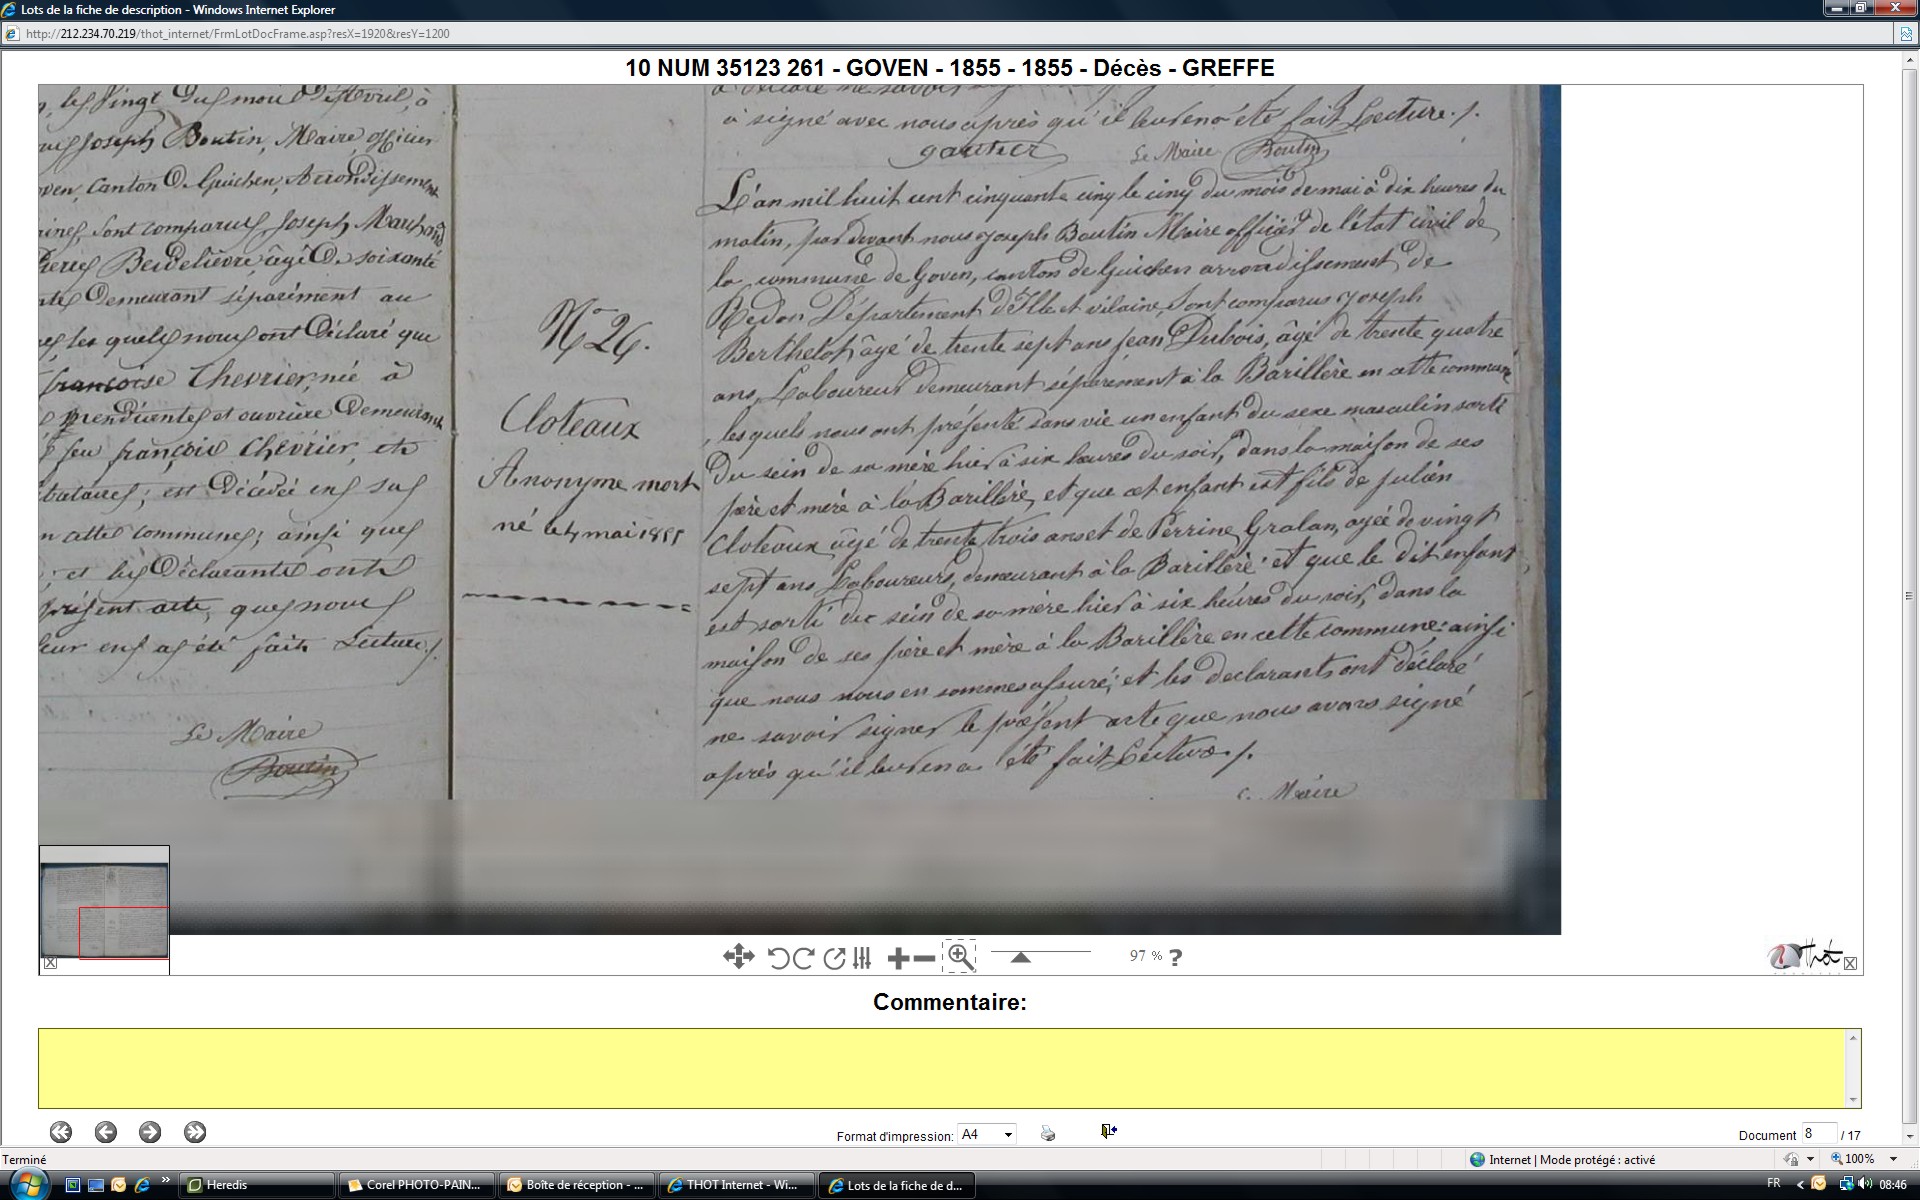 Lots de la fiche de description - Windows Internet Explorer
http://212.234.70.219/thot_internet/FrmLotDocFrame.asp?resX=1920&resY=1200
10 NUM 35123 261 - GOVEN - 1855 - 1855 - Décès - GREFFE
Joseph Boutin, Maire, officier
Canton de Guichen, Arrondissement
sont comparus, Joseph
âgé de soixante
Demeurant séparément au
les quels nous ont Déclaré que
françoise Chevrier, née à
et ouvrière Demeurant
feu françois Chevrier, et
est Décédée en sa
en cette commune; ainsi que
et les Déclarants ont
présent acte, que nous
leur en a été fait Lecture ./.
Le Maire
Boutin
No 26.
Cloteaux
Anonyme mort
né le 4 mai 1855
a déclaré ne savoir
a signé avec nous après qu'il leur en a été fait Lecture ./.
gautier Le Maire Boutin
L'an mil huit cent cinquante cinq le cinq du mois de mai à dix heures du
matin, par devant nous Joseph Boutin Maire officier de l'état civil de
la commune de Goven, canton de Guichen arrondissement de
Redon Département d'Ille et vilaine, Sont comparus Joseph
Berthelot, âgé de trente sept ans jean Dubois, âgé de trente quatre
ans, Laboureurs demeurant séparément à la Barillère en cette commune
, les quels nous ont présenté sans vie un enfant du sexe masculin sorti
du sein de sa mère hier à six heures du soir, dans la maison de ses
père et mère à la Barillère, et que cet enfant est fils de julien
Cloteaux âgé de trente trois ans et de Perrine Gralan, agée de vingt
sept ans Laboureurs, demeurant à la Barillère et que le dit enfant
est sorti du sein de sa mère hier à six heures du soir, dans la
maison de ses père et mère à la Barillère en cette commune: ainsi
que nous nous en sommes assuré; et les declarants ont déclaré
ne savoir signer le présent acte que nous avons signé
après qu'il leur en a été fait Lecture ./.
Le Maire
97 %
?
Thot
Commentaire:
Format d'impression: A4
Document 8 / 17
Terminé
Internet | Mode protégé : activé
100%
Heredis
Corel PHOTO-PAIN...
Boîte de réception - ...
THOT Internet - Wi...
Lots de la fiche de d...
FR
08:46